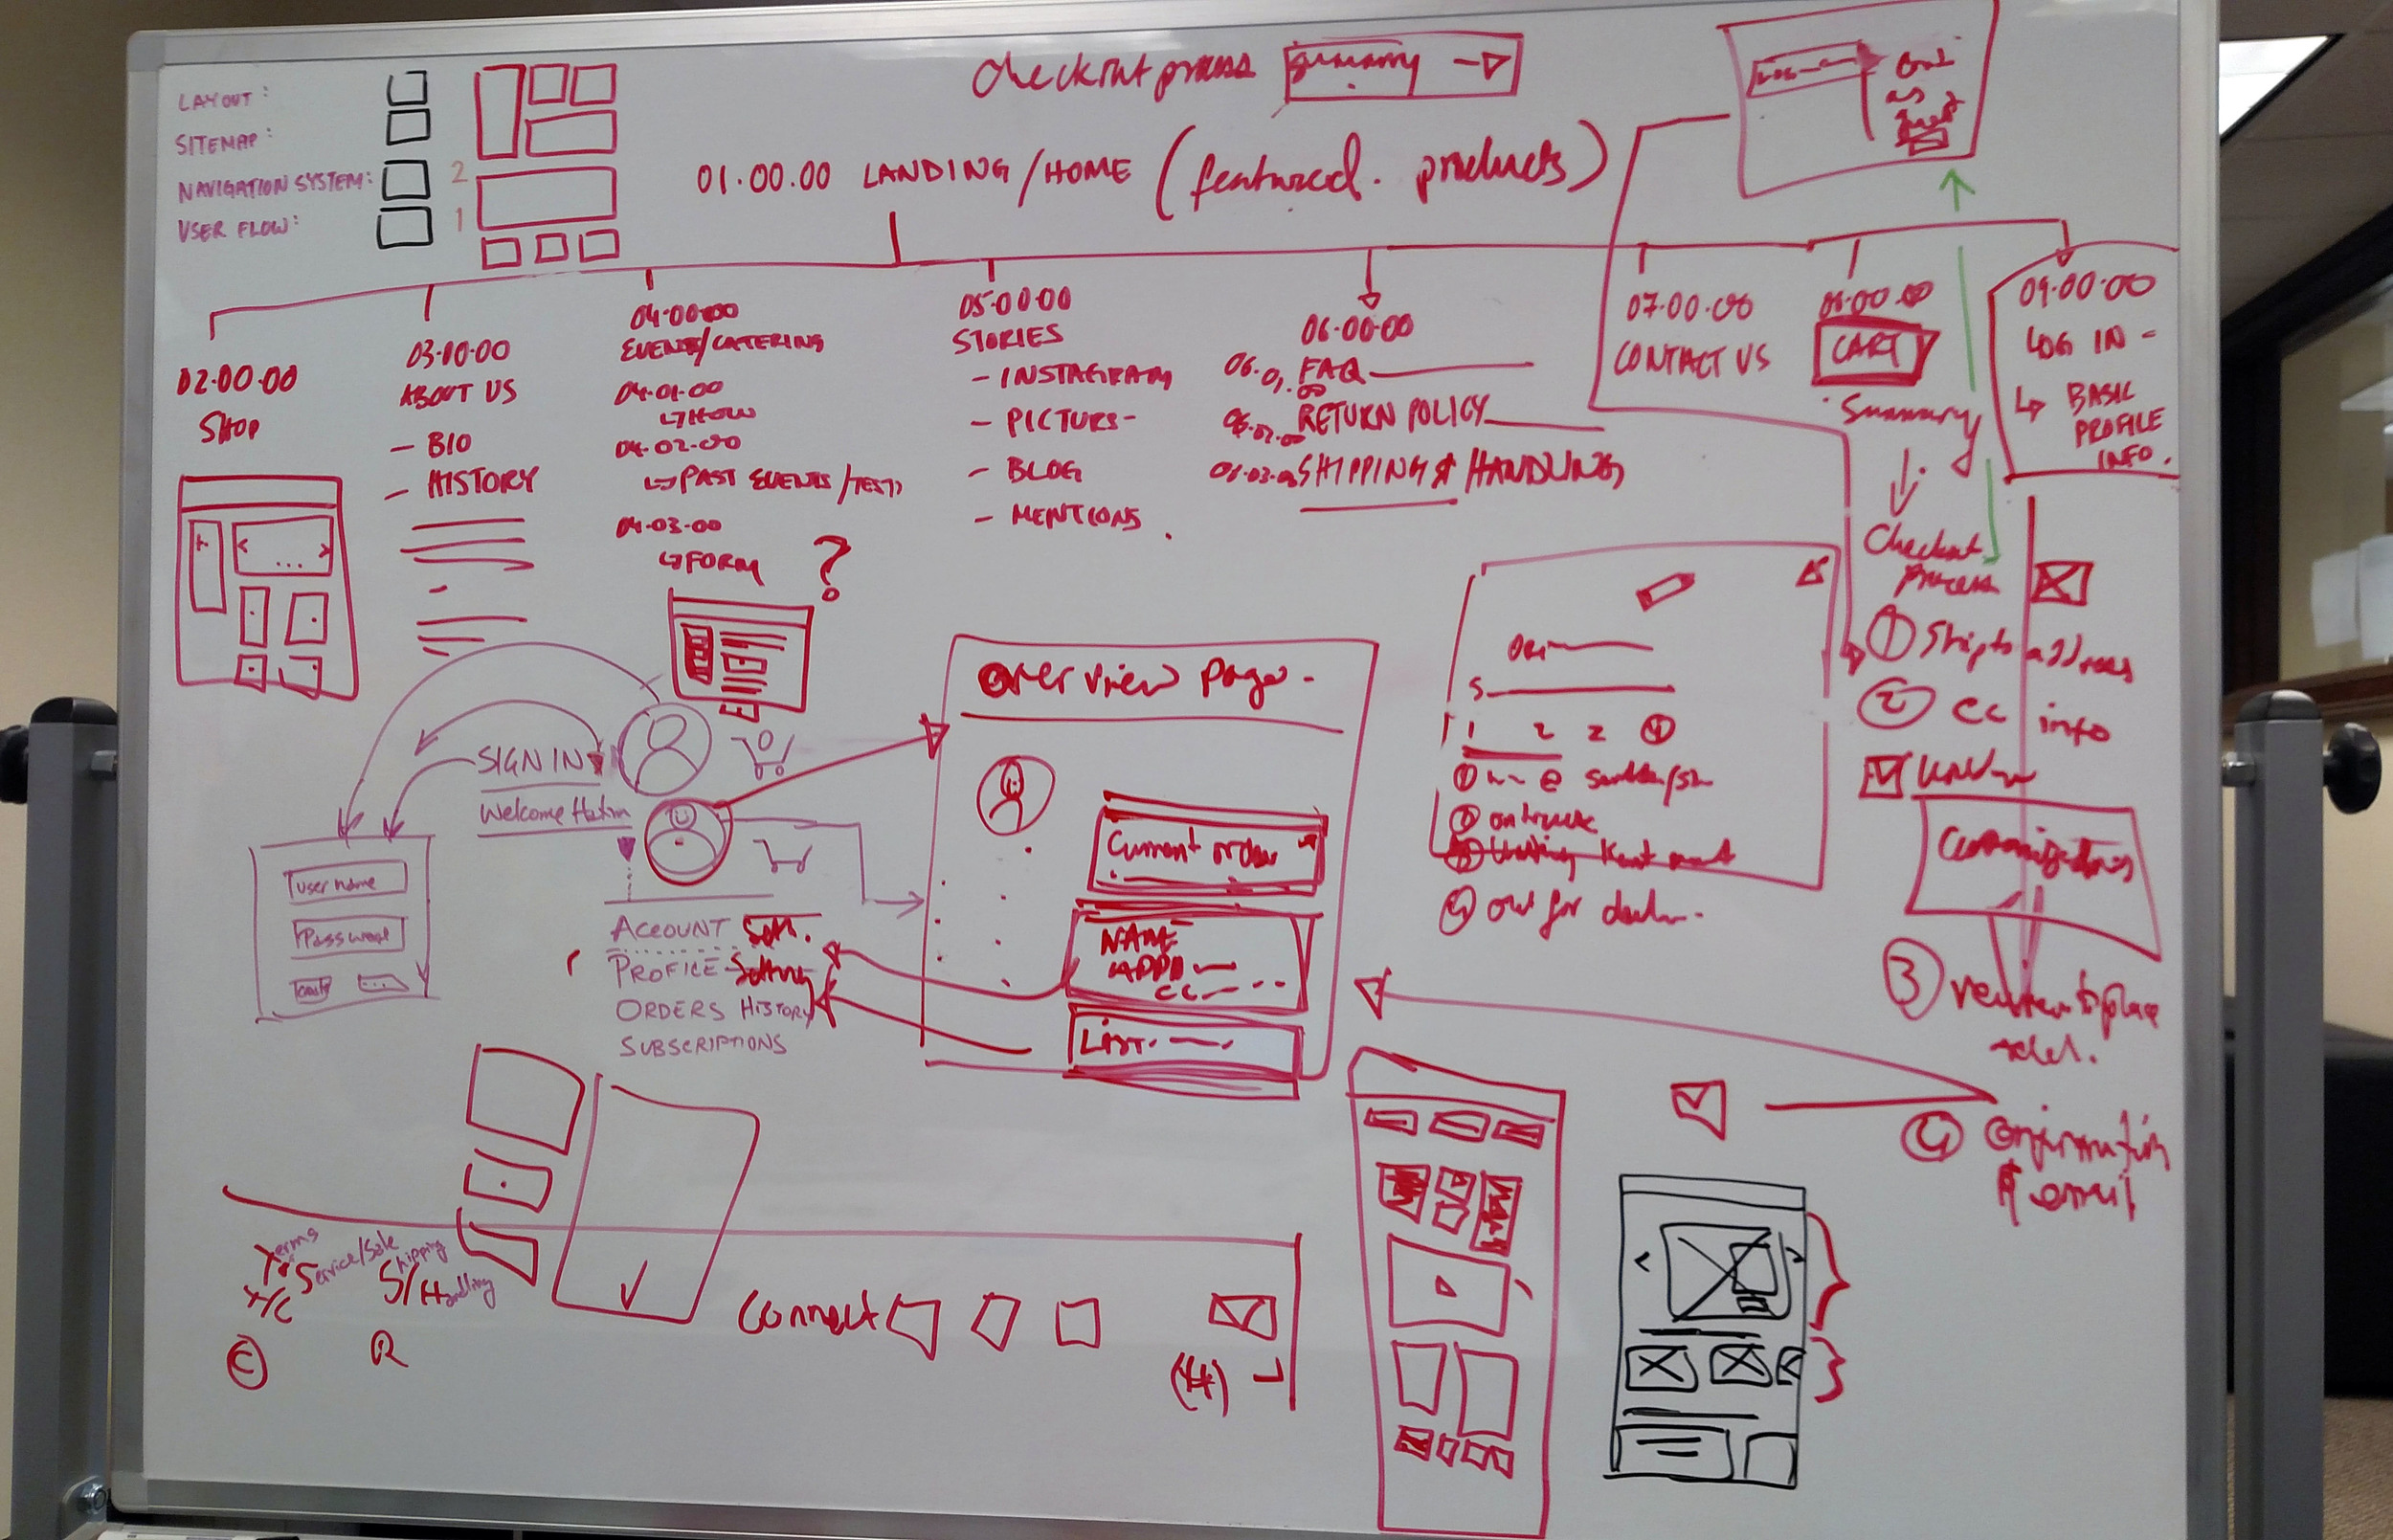 LAYOUT:
SITEMAP:
NAVIGATION SYSTEM:
USER FLOW:
2
1
Checkout process
Summary
01.00.00 LANDING/HOME (featured. products)
as
guest
02.00.00
SHOP
03.00.00
ABOUT US
- BIO
- HISTORY
04.00.00
EVENTS/CATERING
04.01.00
HOW
04.02.00
PAST EVENTS/TEST
04.03.00
FORM
?
05.00.00
STORIES
- INSTAGRAM
- PICTURS-
- BLOG
- MENTIONS
06.00.00
06.01.00 FAQ
06.02.00 RETURN POLICY
06.03.00 SHIPPING & HANDLING
07.00.00
CONTACT US
08.00.00
CART
Summary
Checkout
process
1 Ship to address
2 CC info
3 review to place
4 Confirmation
& email
09.00.00
LOG IN -
BASIC
PROFILE
INFO.
SIGN IN
Welcome Hatim
user name
Password
ACCOUNT Sett.
PROFILE Setting
ORDERS HISTORY
SUBSCRIPTIONS
overview page-
Current order
NAME
ADDD
CC
LIST.
S
1 2 2 4
2 on truck
4 out for
Terms
Service/Sale
Shipping
S/Handling
T/C
©
R
Connect
(#)